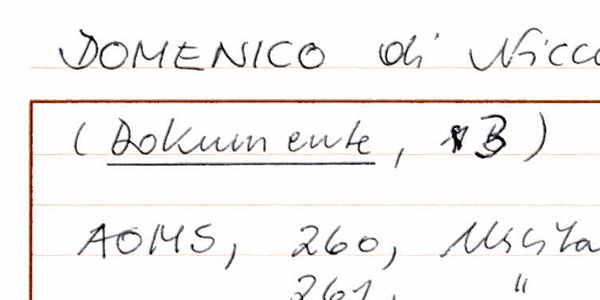 DOMENICO di Nicco
(Dokumente, B)
AOMS, 260, Uscita
261, "